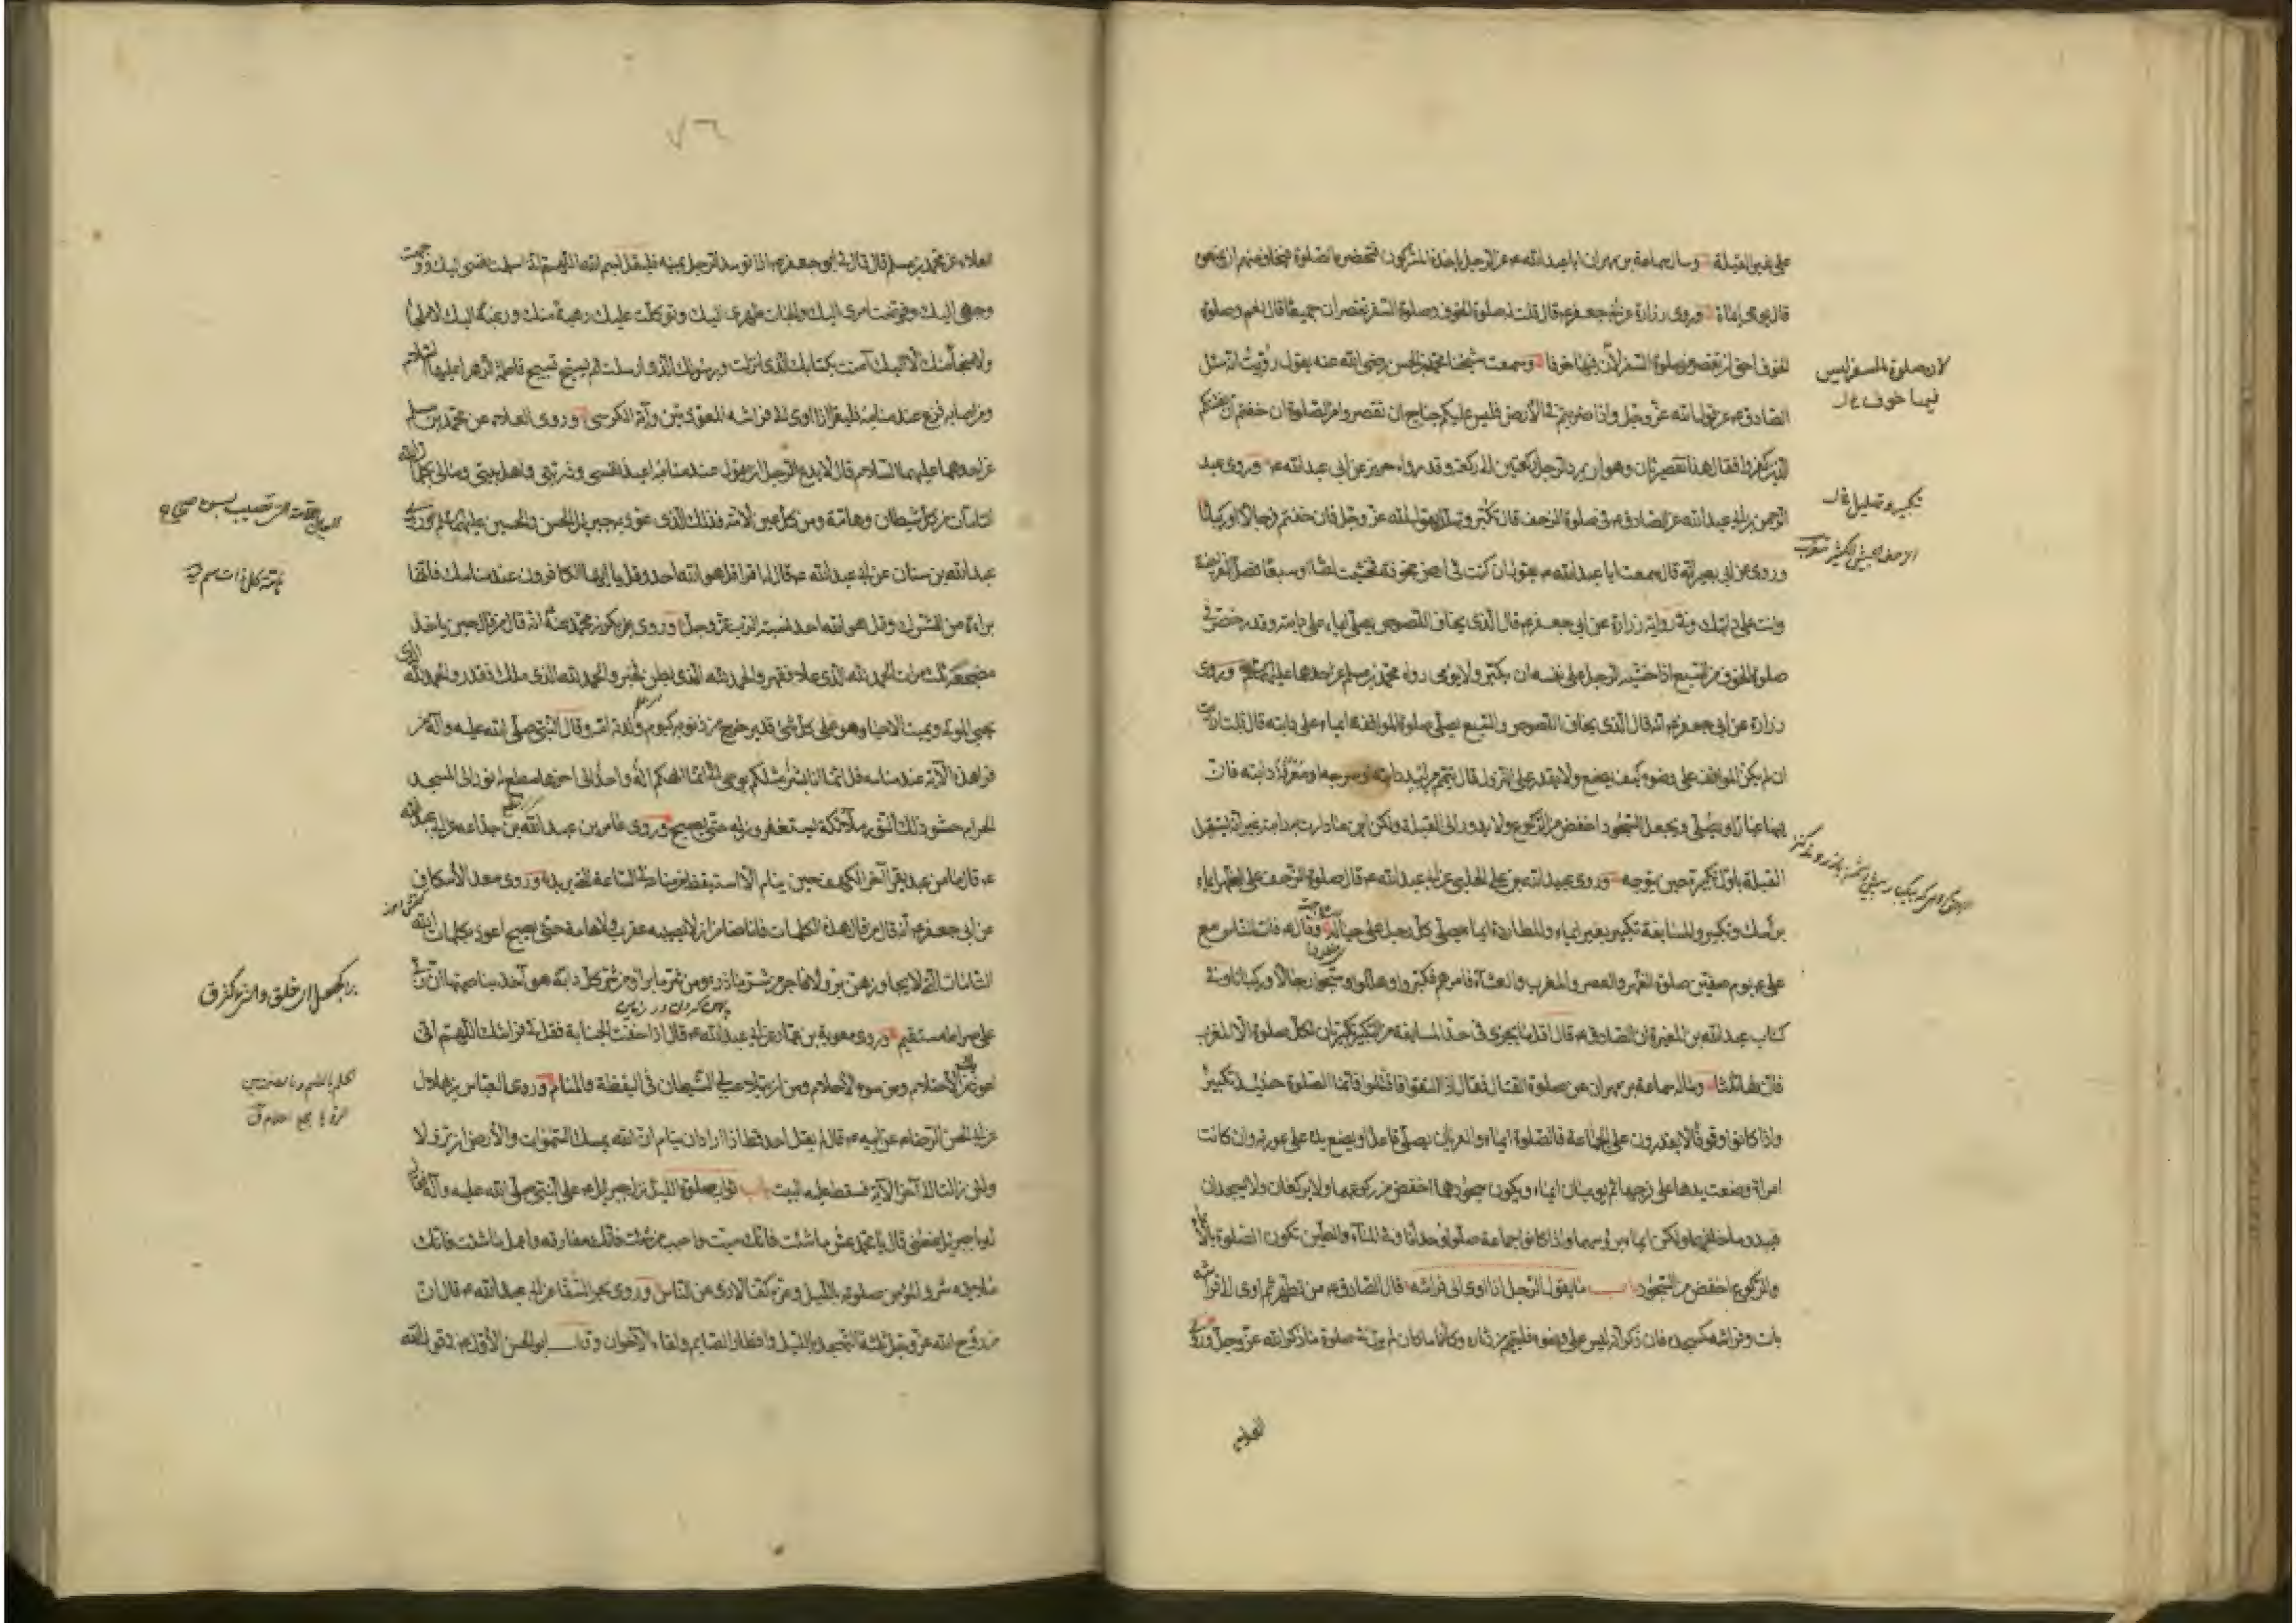 على غير القبلة وسال سماعة بن مهران ابا عبد الله ع عن الرجل ياخذه المشركون فتحضره الصلوة فيخاف منهم ان يمنعوه
قال يومى ايماء وروى زرارة عن ابى جعفر ع قال قلت له صلوة الخوف وصلوة السفر تقصران جميعا قال نعم وصلوة
الخوف احق ان تقصر من صلوة السفر لان فيها خوفا وسمعت شيخنا محمد بن الحسن رضى الله عنه يقول رويت انه سئل
الصادق ع عن قول الله عز وجل واذا ضربتم فى الارض فليس عليكم جناح ان تقصروا من الصلوة ان خفتم ان يفتنكم
الذين كفروا فقال هذا تقصير ثان وهو ان يرد الرجل ركعتين الى ركعة وقد رواه حريز عن ابى عبد الله ع وروى عبد
الرحمن بن ابى عبد الله عن الصادق ع فى صلوة الزحف قال تكبر وتهلل يقول الله عز وجل فان خفتم فرجالا او ركبانا
وروى عن ابى بصير انه قال سمعت ابا عبد الله ع يقول ان كنت فى ارض مخوفة فخشيت لصا او سبعا فصل الفريضة
وانت على دابتك وفى رواية زرارة عن ابى جعفر ع قال الذى يخاف اللصوص يصلى ايماء على دابته وقد رخص فى
صلوة الخوف من السبع اذا خشيه الرجل على نفسه ان يكبر ولا يومى رواه محمد بن مسلم عن احدهما عليهما السلام وروى
زرارة عن ابى جعفر ع انه قال الذى يخاف اللصوص والسبع يصلى صلوة المواقفة ايماء على دابته قال قلت ارايت
ان لم يكن المواقف على وضوء كيف يصنع ولا يقدر على النزول قال يتيمم من لبد دابته او سرجه او معرفة دابته فان
فيها غبارا ويصلى ويجعل السجود اخفض من الركوع ولا يدور الى القبلة ولكن اينما دارت به دابته غير انه يستقبل
القبلة باول تكبيرة حين يتوجه وروى عبيد الله بن على الحلبى عن ابى عبد الله ع قال صلوة الزحف على الظهر ايماء
براسك وتكبير والمسايفة تكبير بغير ايماء والمطاردة ايماء يصلى كل رجل على حياله وقال ع فات الناس مع
على ع يوم صفين صلوة الظهر والعصر والمغرب والعشاء فامرهم فكبروا وهللوا وسبحوا رجالا وركبانا وفى
كتاب عبد الله بن المغيرة ان الصادق ع قال اقل ما يجزى فى حد المسايفة من التكبير تكبيرتان لكل صلوة الا المغرب
فان لها ثلثا وساله سماعة بن مهران عن صلوة القتال فقال اذا التقوا فاقتتلوا فانما الصلوة حينئذ تكبير
واذا كانوا وقوفا لا يقدرون على الجماعة فالصلوة ايماء والعريان يصلى قاعدا ويضع يده على عورته وان كانت
امراة وضعت يدها على فرجها ثم يوميان ايماء ويكون سجودهما اخفض من ركوعهما ولا يركعان ولا يسجدان
فيبدو ما خلفهما ولكن ايماء برؤسهما واذا كانوا جماعة صلوا وحدانا وفى الماء والطين تكون الصلوة بالايماء
والركوع اخفض من السجود باب ما يقول الرجل اذا اوى الى فراشه قال الصادق ع من تطهر ثم اوى الى فراشه
بات وفراشه كمسجده فان ذكر انه ليس على وضوء فليتيمم من دثاره وكائنا ما كان لم يزل فى صلوة ما ذكر الله عز وجل وروى
العلاء
لان صلوة السفر ليس
فيها خوف
تكبير وتهليل
٧٦
العلاء عن محمد بن مسلم قال قال لى ابو جعفر ع اذا توسد الرجل يمينه فليقل بسم الله اللهم انى اسلمت نفسى اليك ووجهت
وجهى اليك وفوضت امرى اليك والجات ظهرى اليك وتوكلت عليك رهبة منك ورغبة اليك لا ملجا
ولا منجا منك الا اليك آمنت بكتابك الذى انزلت وبرسولك الذى ارسلت ثم يسبح تسبيح فاطمة الزهراء عليها السلام
ومن اصابه فزع عند منامه فليقرا اذا اوى الى فراشه المعوذتين وآية الكرسى وروى العلاء عن محمد بن مسلم
عن احدهما عليهما السلام قال لا يدع الرجل ان يقول عند منامه اعيذ نفسى وذريتى واهل بيتى ومالى بكلمات الله
التامات من كل شيطان وهامة ومن كل عين لامة فذلك الذى عوذ به جبرئيل الحسن والحسين عليهما السلام وروى
عبد الله بن سنان عن ابى عبد الله ع قال اقرا قل هو الله احد وقل يا ايها الكافرون عند منامك فانها
براءة من الشرك وقل هو الله احد نسبة الرب عز وجل وروى بكر بن محمد عنه ع انه قال من قال حين ياخذ
مضجعه ثلث مرات الحمد لله الذى علا فقهر والحمد لله الذى بطن فخبر والحمد لله الذى ملك فقدر والحمد لله الذى
يحيى الموتى ويميت الاحياء وهو على كل شئ قدير خرج من ذنوبه كيوم ولدته امه وقال النبى صلى الله عليه وآله من
قرا هذه الآية عند منامه قل انما انا بشر مثلكم يوحى الى انما الهكم اله واحد الى اخرها سطع له نور الى المسجد
الحرام حشو ذلك النور ملائكة يستغفرون له حتى يصبح وروى عامر بن عبد الله بن جذاعة عن ابى عبد الله
ع قال ما من عبد يقرا آخر الكهف حين ينام الا استيقظ من منامه فى الساعة التى يريد وروى سعد الاسكاف
عن ابى جعفر ع انه قال من قال هذه الكلمات فانا ضامن ان لا يصيبه عقرب ولا هامة حتى يصبح اعوذ بكلمات الله
التامات التى لا يجاوزهن بر ولا فاجر من شر ما ذرء ومن شر ما برا ومن شر كل دابة هو آخذ بناصيتها ان ربى
على صراط مستقيم وروى معوية بن عمار عن ابى عبد الله ع قال اذا خفت الجنابة فقل فى فراشك اللهم انى
اعوذ بك من الاحتلام ومن سوء الاحلام ومن ان يتلاعب بى الشيطان فى اليقظة والمنام وروى العباس بن هلال
عن ابى الحسن الرضا ع عن ابيه ع قال لم يقل احد قط اذا اراد ان ينام ان الله يمسك السموات والارض ان تزولا
ولئن زالتا الى آخر الآية فسقط عليه البيت باب ثواب صلوة الليل نزل جبرئيل ع على النبى صلى الله عليه وآله فقال
له يا جبرئيل عظنى قال يا محمد عش ما شئت فانك ميت واحبب من شئت فانك مفارقه واعمل ما شئت فانك
ملاقيه شرف المؤمن صلوته بالليل وعزه كف الاذى عن الناس وروى بحر السقا عن ابى عبد الله ع قال ان
من روح الله عز وجل ثلثة التهجد بالليل وافطار الصايم ولقاء الاخوان وقال ابو الحسن الاول ع فى قول الله